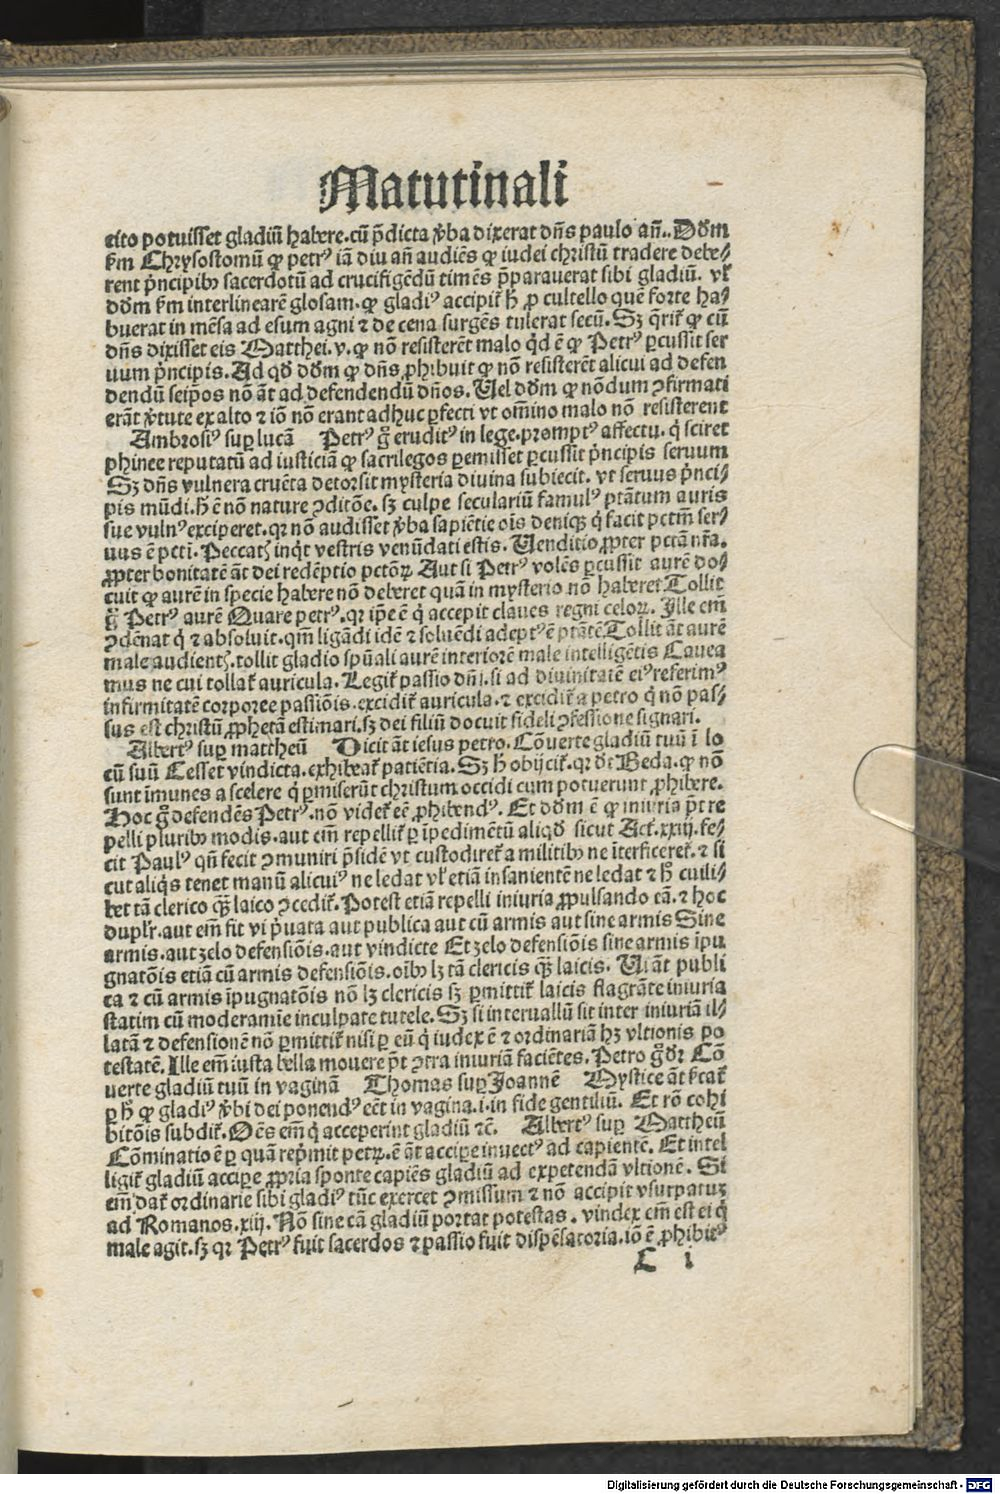 Matutinali
cito potuisset gladiū habere. cū p̄dicta v̾ba dixerat dn̄s paulo an̄.. Dd̓m
s̄m Chrysostomū qꝫ petrꝰ iā diu an̄ audiēs qꝫ iudei christū tradere debe⸗
rent p̓ncipibꝫ sacerdotū ad crucifigēdū timēs p̄pparauerat sibi gladiū. vl̓
dd̓m s̄m interlinearē glosam. qꝫ gladiꝰ accipit̓ h̄ ꝓ cultello quē forte ha⸗
buerat in mēsa ad esum agni ⁊ de cena surgēs tulerat secū. Sꝫ q̄rit̓ qꝫ cū
dn̄s dixisset eis Matthei. v. qꝫ nō resisterēt malo qd̓ ē qꝫ Petrꝰ ꝑcussit ser
uum p̓ncipis. Ad qd̓ dd̓m qꝫ dn̄s ꝓhibuit qꝫ nō resisterēt alicui ad defen
dendū seip̄os nō āt ad defendendū dn̄os. Uel dd̓m qꝫ nōdum ꝯfirmati
erāt v̾tute ex alto ⁊ iō nō erant adhuc ꝑfecti vt om̄ino malo nō resisterent
Ambrosiꝰ suꝑ lucā Petrꝰ g̊ eruditꝰ in lege. promptꝰ affectu. q̓ sciret
phinee reputatū ad iusticiā qꝫ sacrilegos ꝑemisset ꝑcussit p̓ncipis seruum
Sꝫ dn̄s vulnera cruēta detorsit mysteria diuina subiecit. vt seruus p̓nci⸗
pis mūdi. h̄ ē nō nature ꝯditōe. sꝫ culpe seculariū famulꝰ ptātum auris
sue vulnꝰ exciperet. qꝛ nō audisset v̾ba sapiētie ois deniqꝫ q̓ facit pctm̄ ser⸗
uus ē pcti. Peccatꝭ inq̓t vestris venūdati estis. Uenditio ꝓpter pctā nr̄a.
ꝓpter bonitatē āt dei redēptio pctōꝝ. Aut si Petrꝰ volēs ꝑcussit aurē do⸗
cuit qꝫ aurē in specie habere nō deberet quā in mysterio nō haberet Tollit
g̊ Petrꝰ aurē Quare petrꝰ. qꝛ ip̄e ē q̓ accepit claues regni celoꝝ. Ille em̄
ꝯdēnat q̓ ⁊ absoluit. qm̄ ligādi idē ⁊ soluēdi adeptꝰ ē ptātē. Tollit āt aurē
male audientꝭ. tollit gladio spūali aurē interiorē male intelligētis Cauea
mus ne cui tollat̓ auricula. Legit̓ passio dn̄i. si ad diuinitatē eiꝰ referimꝰ
infirmitatē corporee passiōis. excidit̓ auricula. ⁊ excidit̓ a petro q̓ nō pas⸗
sus est christū ꝓphetā estimari. sꝫ dei filiū docuit fideli ꝯfessione signari.
Albertꝰ suꝑ mattheū Dicit āt iesus petro. Cōuerte gladiū tuū ī lo
cū suū Cesset vindicta. exhibeat̓ patiētia. Sꝫ h̄ obijcit̓. qꝛ dt̓ Beda. qꝫ nō
sunt īmunes a scelere q̓ ꝑmiserūt christum occidi cum potuerunt ꝓhibere.
Hoc g̊ defendēs Petrꝰ. nō videt̓ eē ꝓhibendꝰ. Et dd̓m ē qꝫ iniuria p̄t re
pelli pluribꝫ modis. aut em̄ repellit̓ ꝑ īpedimētū aliqd̓ sicut Act̓. xxiij. fe⸗
cit Paulꝰ qn̄ fecit ꝯmuniri p̄sidē vt custodiret̓ a militibꝫ ne īterficeret̓. ⁊ si
cut aliq̓s tenet manū alicuiꝰ ne ledat vl̓ etiā insanientē ne ledat ⁊ h̄ cuili⸗
bet tā clerico qꝫ̄ laico ꝯcedit̓. Potest etiā repelli iniuria ꝓpulsando eā. ⁊ hoc
duplr̄. aut em̄ fit vi p̓uata aut publica aut cū armis aut sine armis Sine
armis. aut zelo defensiōis. aut vindicte Et zelo defensiōis sine armis īpu
gnatōis etiā cū armis defensiōis. oībꝫ lꝫ tā clericis qꝫ̄ laicis. Ui āt publi
ca ⁊ cū armis īpugnatōis nō lꝫ clericis sꝫ ꝑmittit̓ laicis flagrāte iniuria
statim cū moderamīe inculpate tutele. Sꝫ si interuallū sit inter iniuriā il⸗
latā ⁊ defensionē nō ꝑmittit̓ nisi ꝑ eū q̓ iudex ē ⁊ ordinariā hꝫ vltionis po
testatē. Ille em̄ iusta bella mouere p̄t ꝯtra iniuriā faciētes. Petro g̊ dꝛ Cō
uerte gladiū tuū in vaginā Thomas suꝑ Joannē Mystice āt s̄cat̓
ꝑ h̄ qꝫ gladiꝰ v̾bi dei ponendꝰ eēt in vagina. i. in fide gentiliū. Et rō cohi
bitōis subdit̓. Oēs em̄ q̓ acceperint gladiū ⁊c̄. Albertꝰ suꝑ Mattheū
Cōminatio ē ꝑ quā rep̓mit petꝝ. ē āt accipe inuectꝰ ad capientē. Et intel
ligit̓ gladiū acciꝑe ꝓpria sponte capiēs gladiū ad expetendā vltionē. Si
em̄ dat̓ ordinarie sibi gladiꝰ tūc exercet ꝯmissum ⁊ nō accipit vsurpatuꝫ
ad Romanos. xiij. Nō sine cā gladiū portat potestas. vindex em̄ est ei q̓
male agit. sꝫ qꝛ Petrꝰ fuit sacerdos ⁊ passio fuit dispēsatoria. iō ē ꝓhibitꝰ
L i
Digitalisierung gefördert durch die Deutsche Forschungsgemeinschaft - DFG